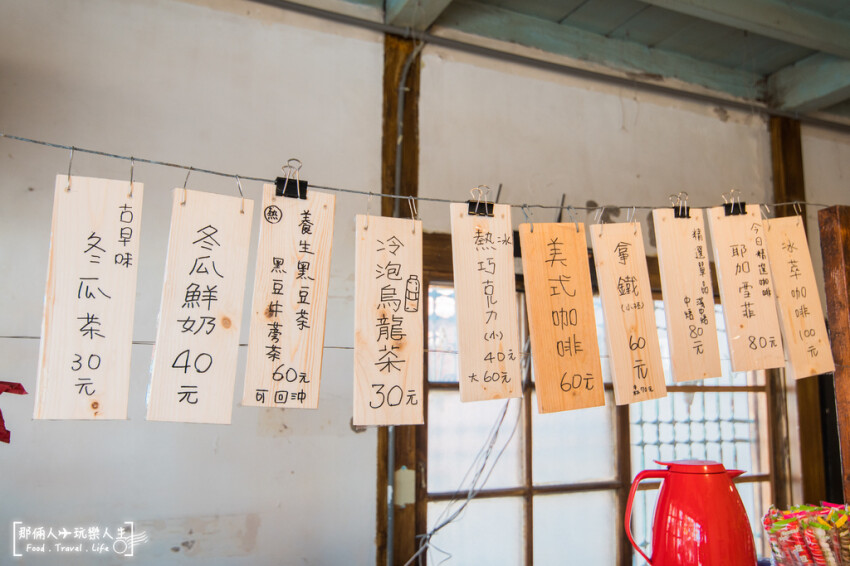 古早味
冬瓜茶
30元
冬瓜鮮奶
40元
熱
養生黑豆茶
黑豆牛蒡茶
60元
可回沖
冷泡烏龍茶
30元
冰
熱巧克力(小)
40元
大60元
美式咖啡
60元
拿鐵
60元
精選單品
80元
今日精選咖啡
耶加雪菲
80元
冰萃咖啡
100元
那倆人玩樂人生
Food . Travel . Life